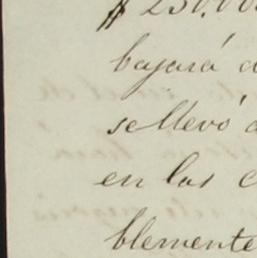 $ 250.00
bajará a
se llevó a
en las c
blemente